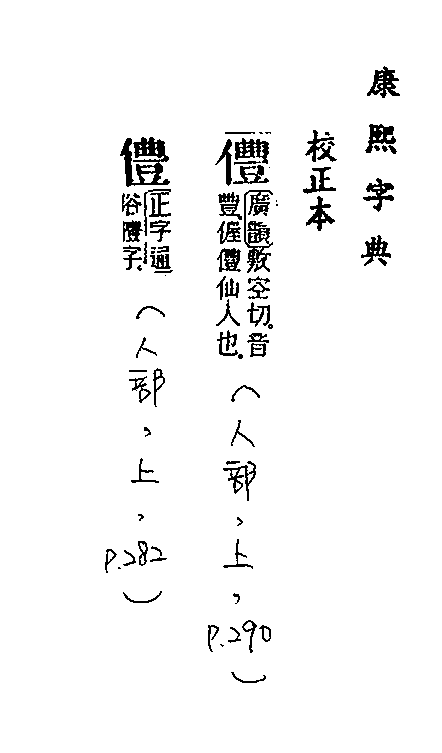 康熙字典
校正本
僼
廣韻敷空切。音
豐。偓僼仙人也。
(人部,上,p.290)
僼
正字通
俗字。
(人部,上,p.282)